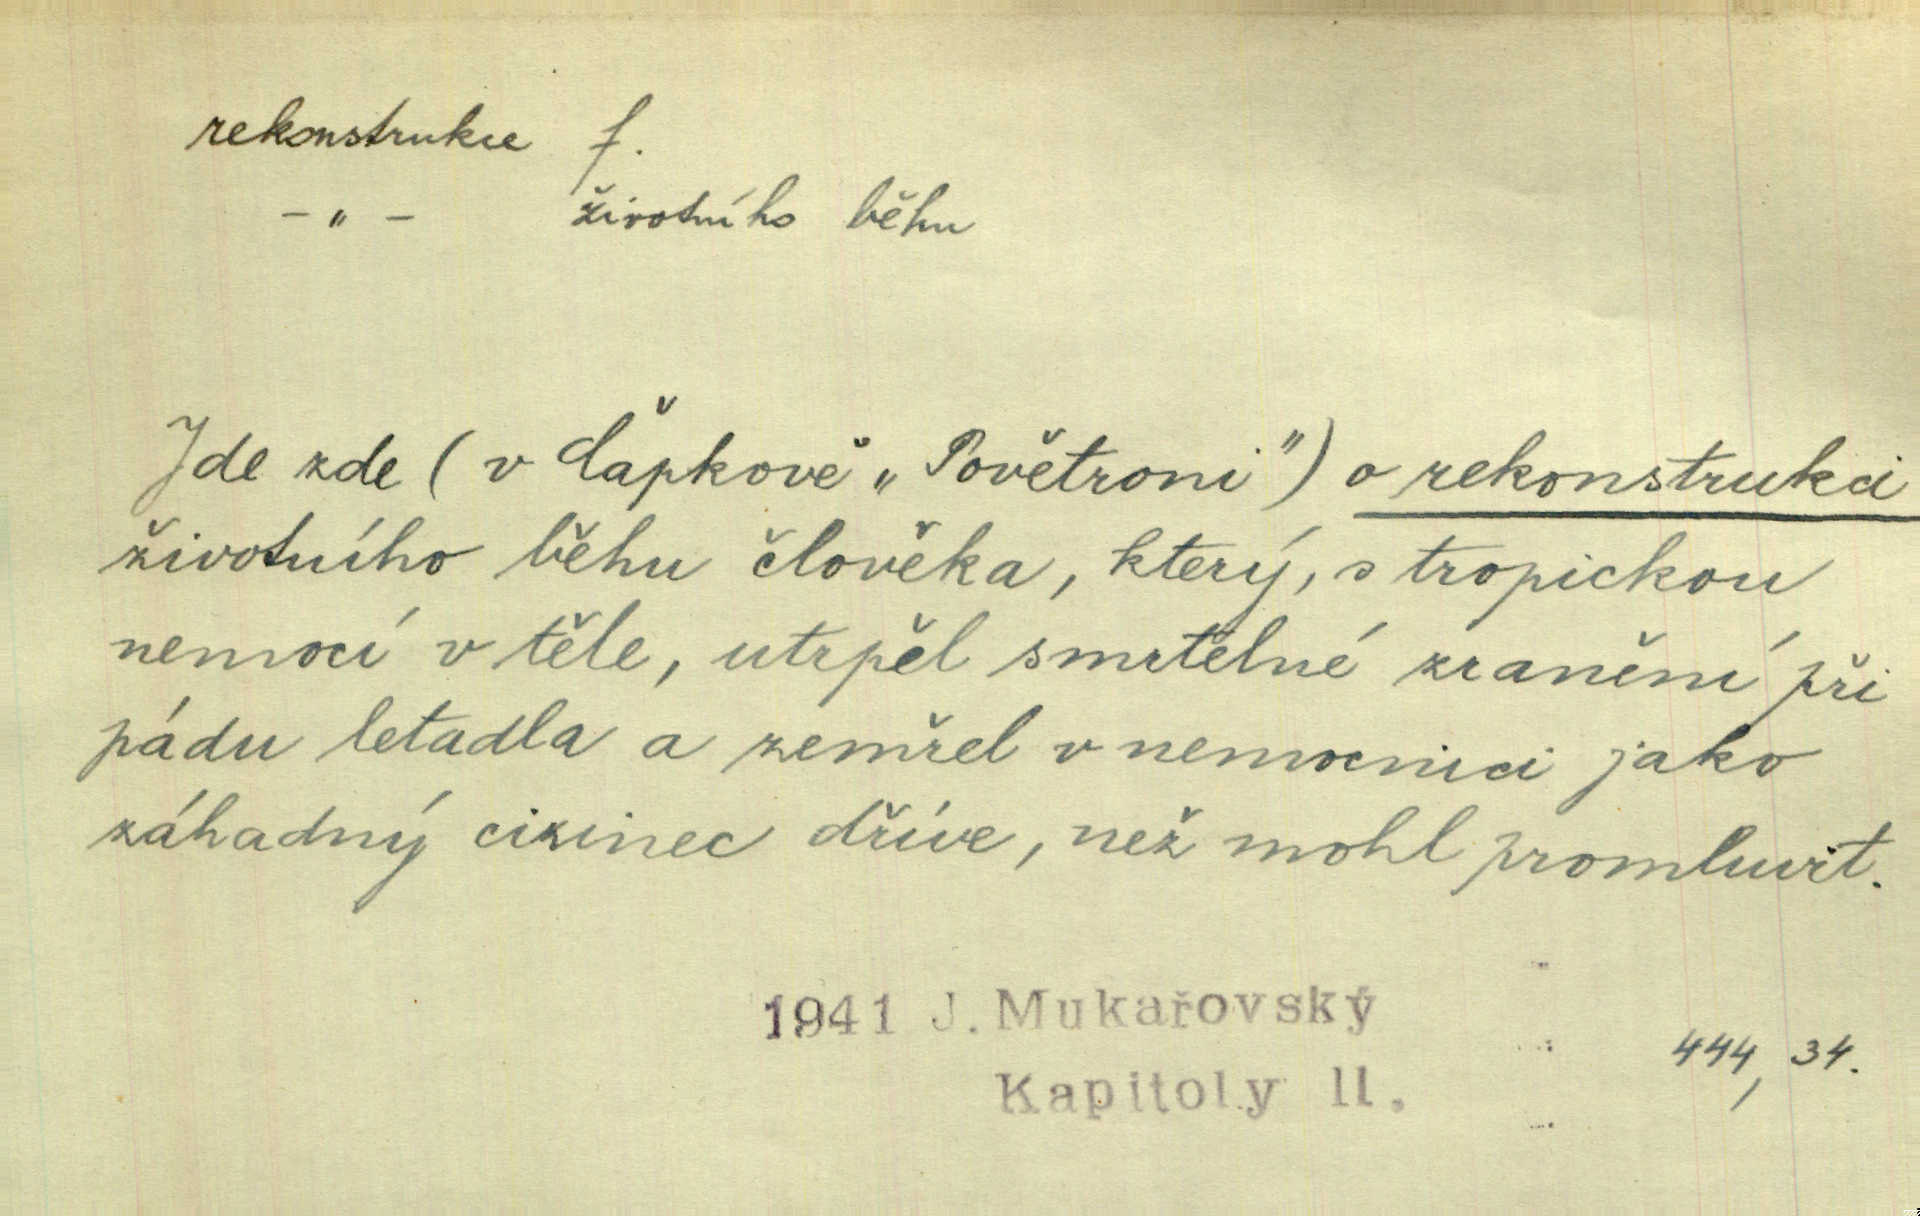 rekonstrukce f.
– „ – životního běhu
Jde zde (v Čapkově „Povětroni") o rekonstrukci
životního běhu člověka, který, s tropickou
nemocí v těle, utrpěl smrtelné zranění při
pádu letadla a zemřel v nemocnici jako
záhadný cizinec dříve, než mohl promluvit.
1941 J. Mukařovský
Kapitoly II.
444, 34.